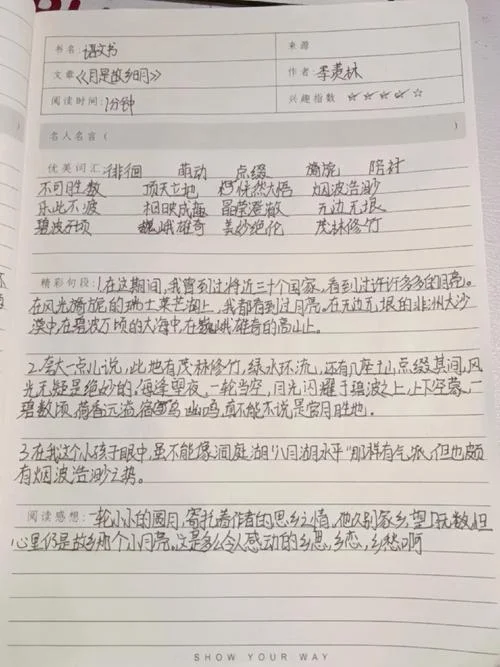 书名：语文书 来源
文章《月是故乡明》 作者：季羡林
阅读时间：1分钟 兴趣指数 ☆☆☆☆☆
名人名言（ ）
优美词汇：徘徊 萌动 点缀 旖旎 陪衬
不可胜数 顶天立地 恍然大悟 烟波浩渺
乐此不疲 相映成趣 晶莹澄澈 无边无垠
碧波万顷 巍峨雄奇 美妙绝伦 茂林修竹
精彩句段：1.在这期间，我曾到过将近三十个国家，看到过许许多多的月亮。
在风光旖旎的瑞士莱芒湖上，我都看到过月亮。在无边无垠的非洲大沙
漠中，在碧波万顷的大海中，在巍峨雄奇的高山上。
2.夸大一点儿说，此地有茂林修竹，绿水环流，还有几座土山点缀其间，风
光无疑是绝妙的。每逢望夜，一轮当空，月光闪耀于碧波之上，上下空蒙，一
碧数顷，荷香远溢，宿鸟幽鸣，真不能不说是赏月胜地。
3.在我这个小孩子眼中，虽不能像洞庭湖“八月湖水平”那样有气派，但也颇
有烟波浩渺之势。
阅读感想：一轮小小的圆月，寄托着作者的思乡之情。他久别家乡，望月无数，但
心里仍是故乡那个小月亮。这是多么令人感动的乡思，乡恋，乡愁啊
SHOW YOUR WAY